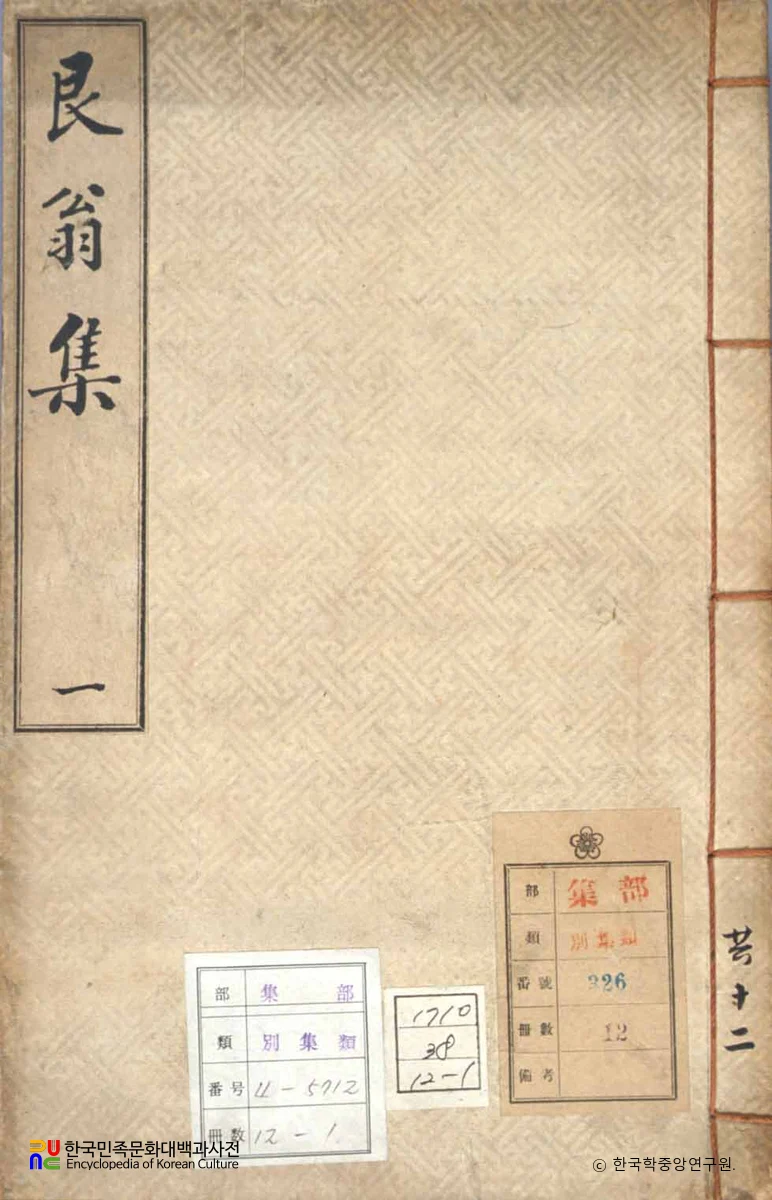 艮翁集
一
共十二
部 集部
類 別集類
番號 326
冊數 12
備考
部 集部
類 別集類
番号 4-5712
冊数 12-1
1710
38
12-1
한국민족문화대백과사전
Encyclopedia of Korean Culture
© 한국학중앙연구원.